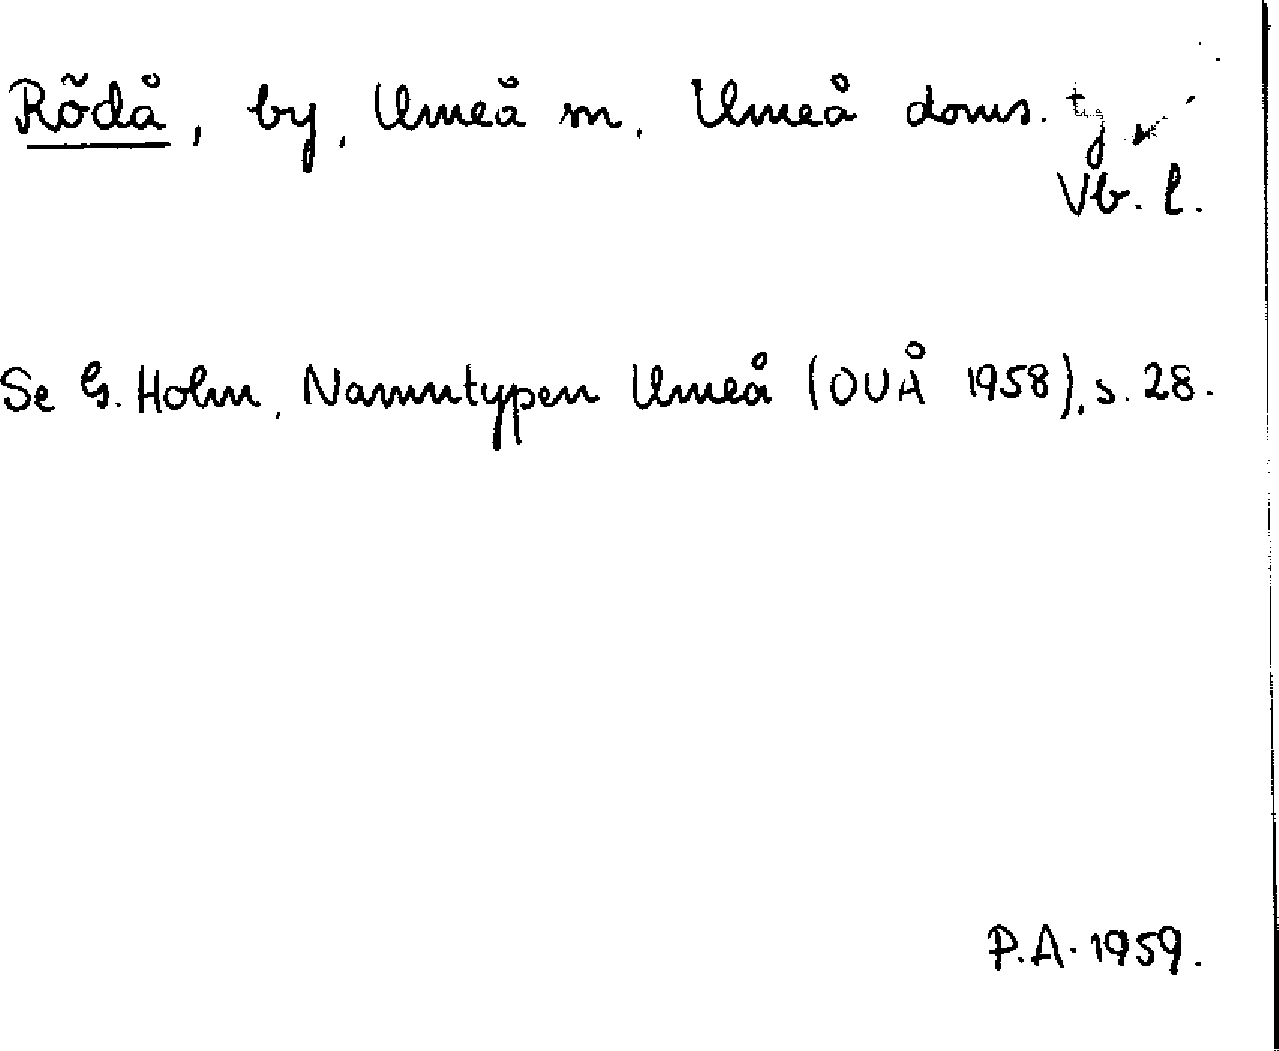 Rödå, by, Umeå sn, Umeå doms.
Vb. l.
Se G. Holm, Namntypen Umeå (OUÅ 1958), s. 28.
P.A. 1959.